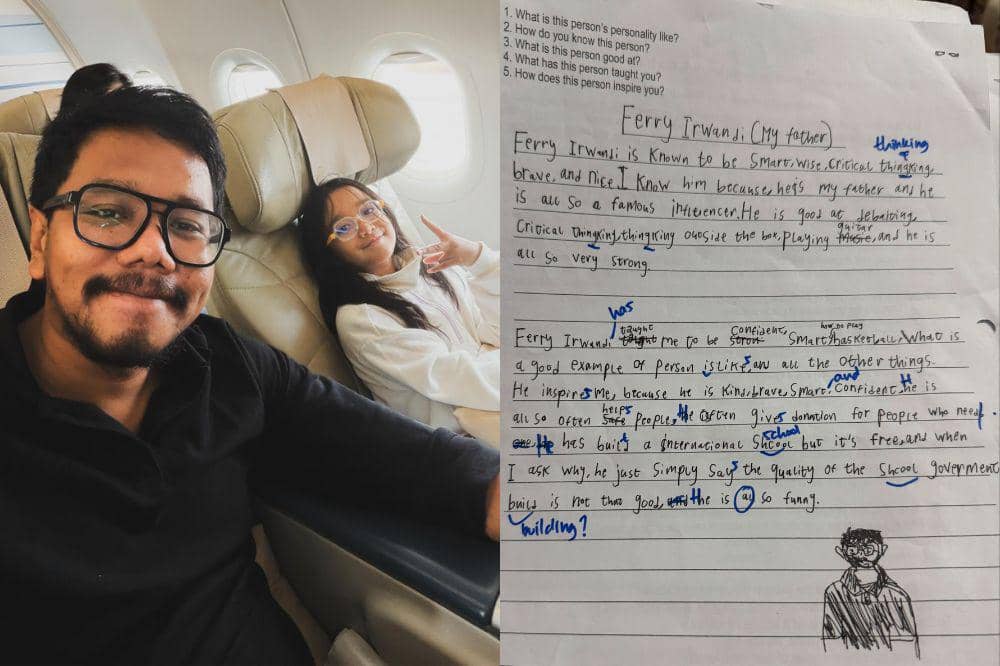 1. What is this person's personality like?
2. How do you know this person?
3. What is this person good at?
4. What has this person taught you?
5. How does this person inspire you?
Ferry Irwandi (My father)
thinking
Ferry Irwandi is known to be smart, wise, critical thingking,
brave, and nice. I know him because, he's my father and he
is all so a famous influencer. He is good at debaiting,
guitar
Critical thingking, thingking outside the box, playing music, and he is
all so very strong.
has
taught confident, how to play
Ferry Irwandi me to be Smart, basketball, What is
a good example of person is like, and all the other things.
He inspires me, because he is kind, brave, smart, and confident. He is
all so often helps people. He often gives donation for people who need.
school
He has built a international Shcool but it's free, and when
I ask why, he just simply says the quality of the shcool goverpment
build is not that good, and He is all so funny.
building?